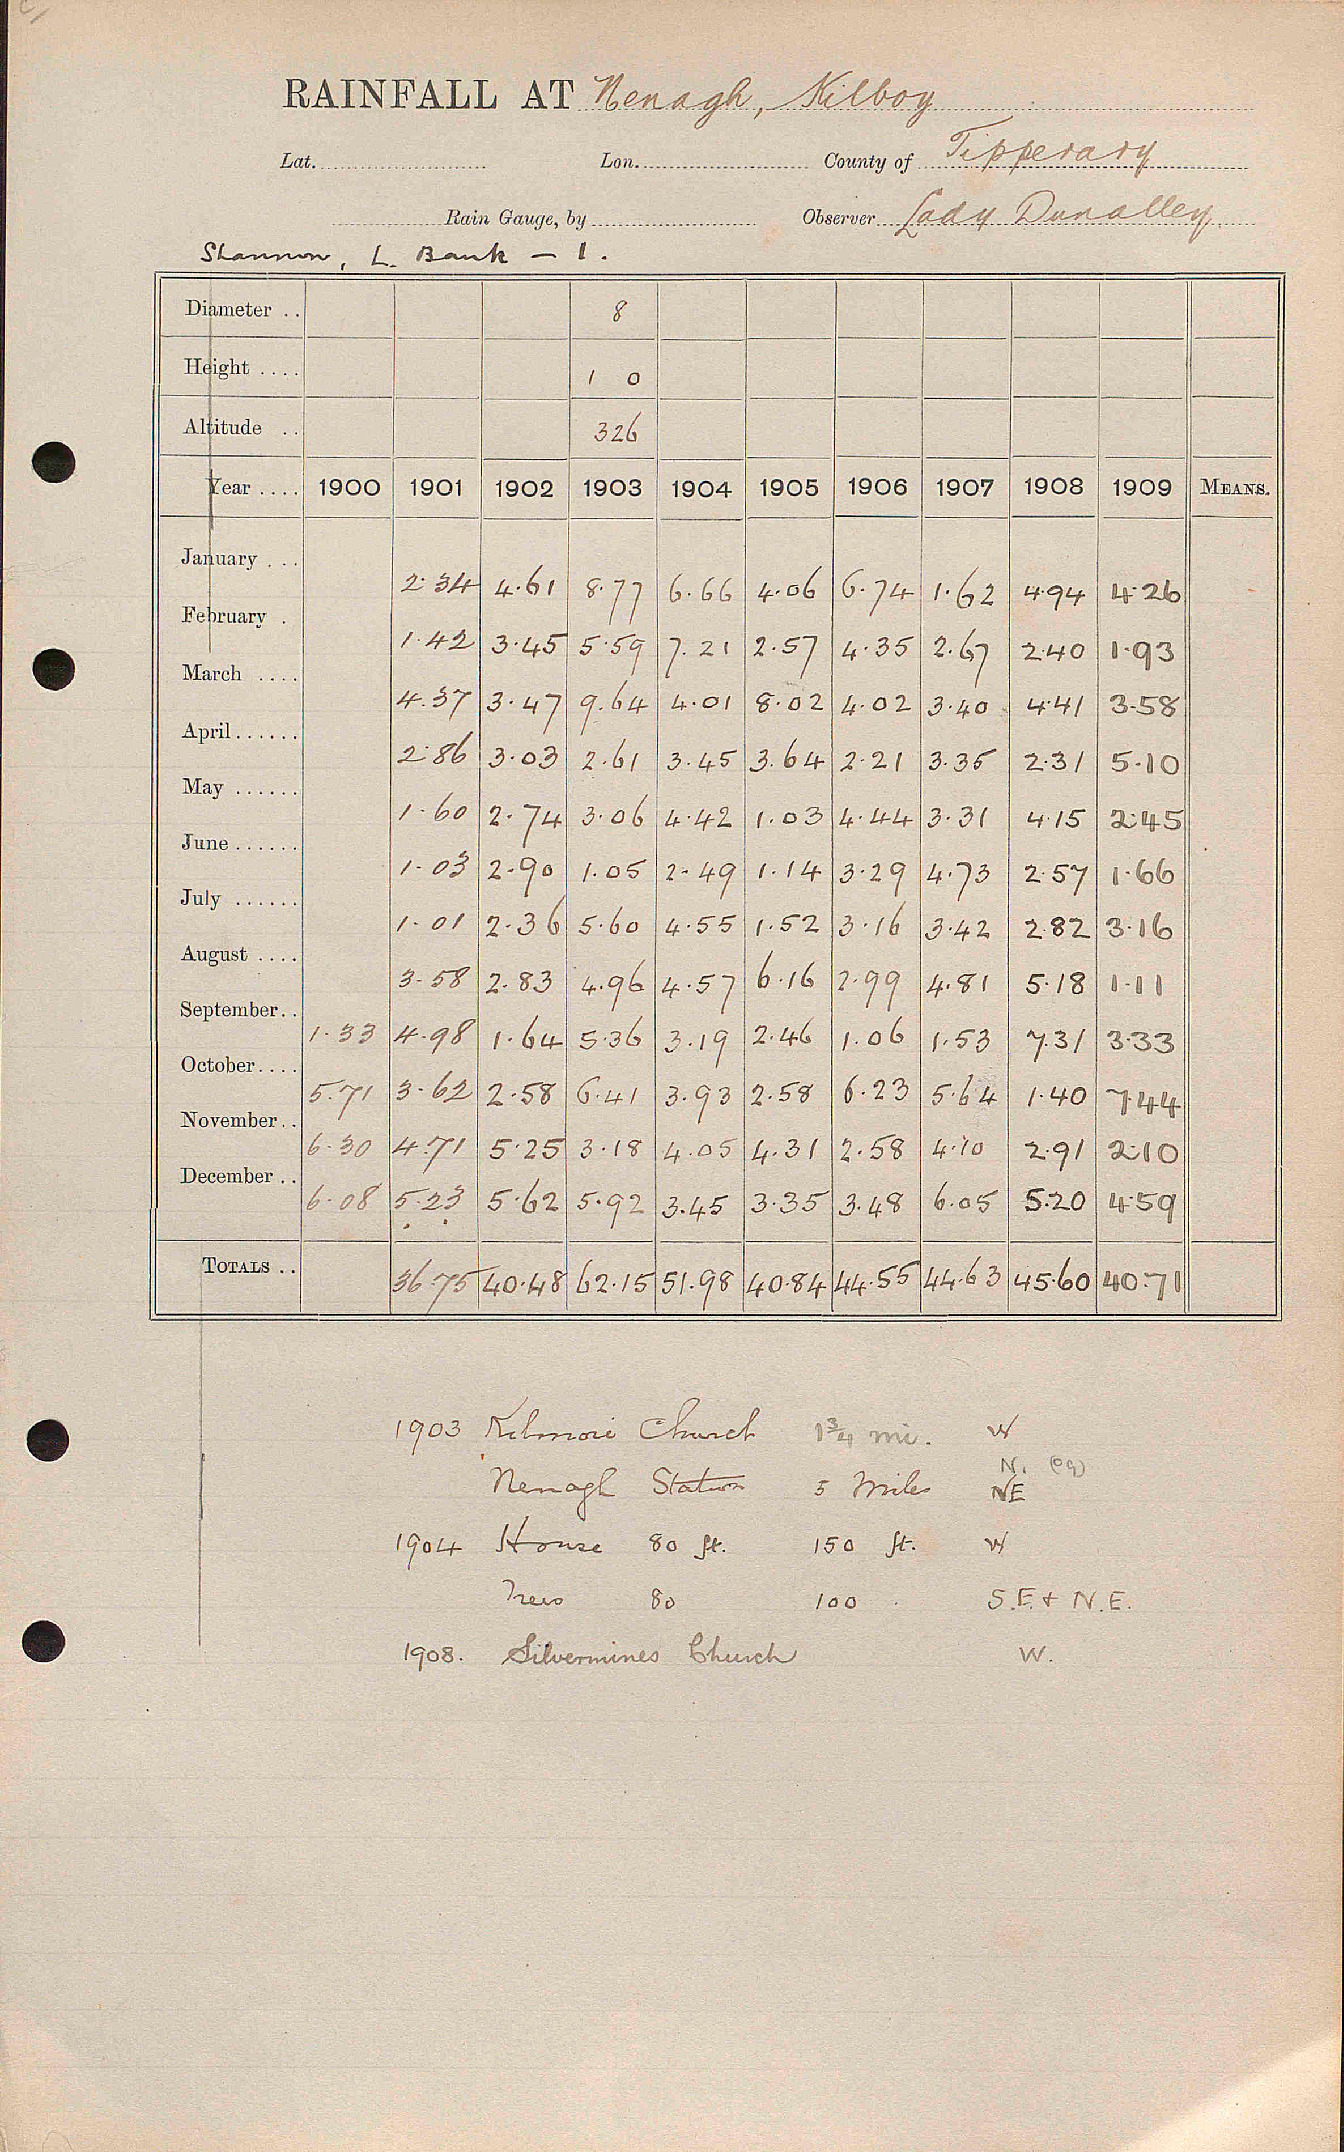 RAINFALL AT Nenagh, Kilboy
Lat. Lon. County of Tipperary
Rain Gauge, by Observer Lady Dunalley
Shannon, L. Bank – 1.
Diameter .. 8
Height .... 1 0
Altitude .. 326
Year .... 1900 1901 1902 1903 1904 1905 1906 1907 1908 1909 MEANS.
January ... 2.34 4.61 8.77 6.66 4.06 6.74 1.62 4.94 4.26
February . 1.42 3.45 5.59 7.21 2.57 4.35 2.67 2.40 1.93
March .... 4.37 3.47 9.64 4.01 8.02 4.02 3.40 4.41 3.58
April...... 2.86 3.03 2.61 3.45 3.64 2.21 3.35 2.31 5.10
May ...... 1.60 2.74 3.06 4.42 1.03 4.44 3.31 4.15 2.45
June...... 1.03 2.90 1.05 2.49 1.14 3.29 4.73 2.57 1.66
July ...... 1.01 2.36 5.60 4.55 1.52 3.16 3.42 2.82 3.16
August .... 3.58 2.83 4.96 4.57 6.16 2.99 4.81 5.18 1.11
September.. 1.33 4.98 1.64 5.36 3.19 2.46 1.06 1.53 7.31 3.33
October.... 5.71 3.62 2.58 6.41 3.93 2.58 6.23 5.64 1.40 7.44
November.. 6.30 4.71 5.25 3.18 4.05 4.31 2.58 4.10 2.91 2.10
December .. 6.08 5.23 5.62 5.92 3.45 3.35 3.48 6.05 5.20 4.59
TOTALS .. 36.75 40.48 62.15 51.98 40.84 44.55 44.63 45.60 40.71
1903 Kilmore Church 1¾ mi. W
N. (09)
Nenagh Station 5 Miles NE
1904 House 80 ft. 150 ft. W
Trees 80 100 . S.E. + N.E.
1908. Silvermines Church W.